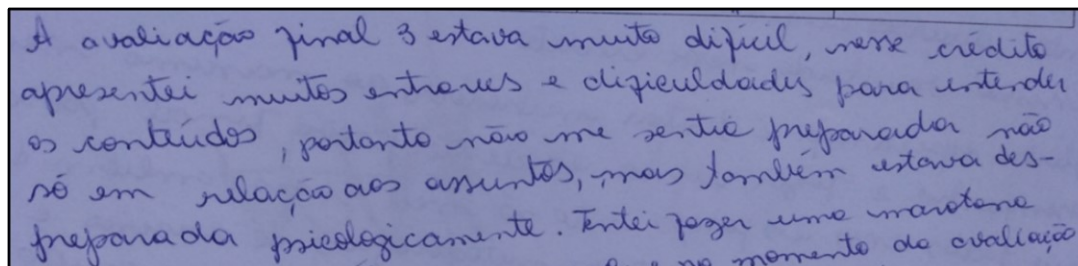 A avaliação final 3 estava muito difícil, nesse crédito
apresentei muitos entraves e dificuldades para entender
os conteúdos, portanto não me sentia preparada não
só em relação aos assuntos, mas também estava des-
preparada psicologicamente. Tentei fazer uma maratona
no momento da avaliação